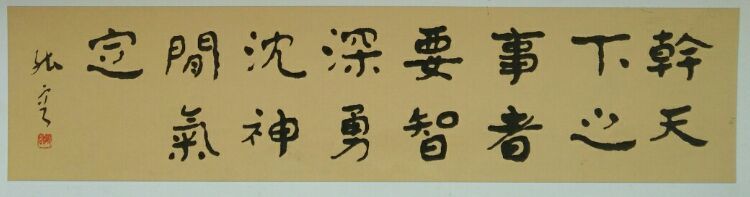 幹天
下之
事者
要智
深勇
沈神
閒氣
定